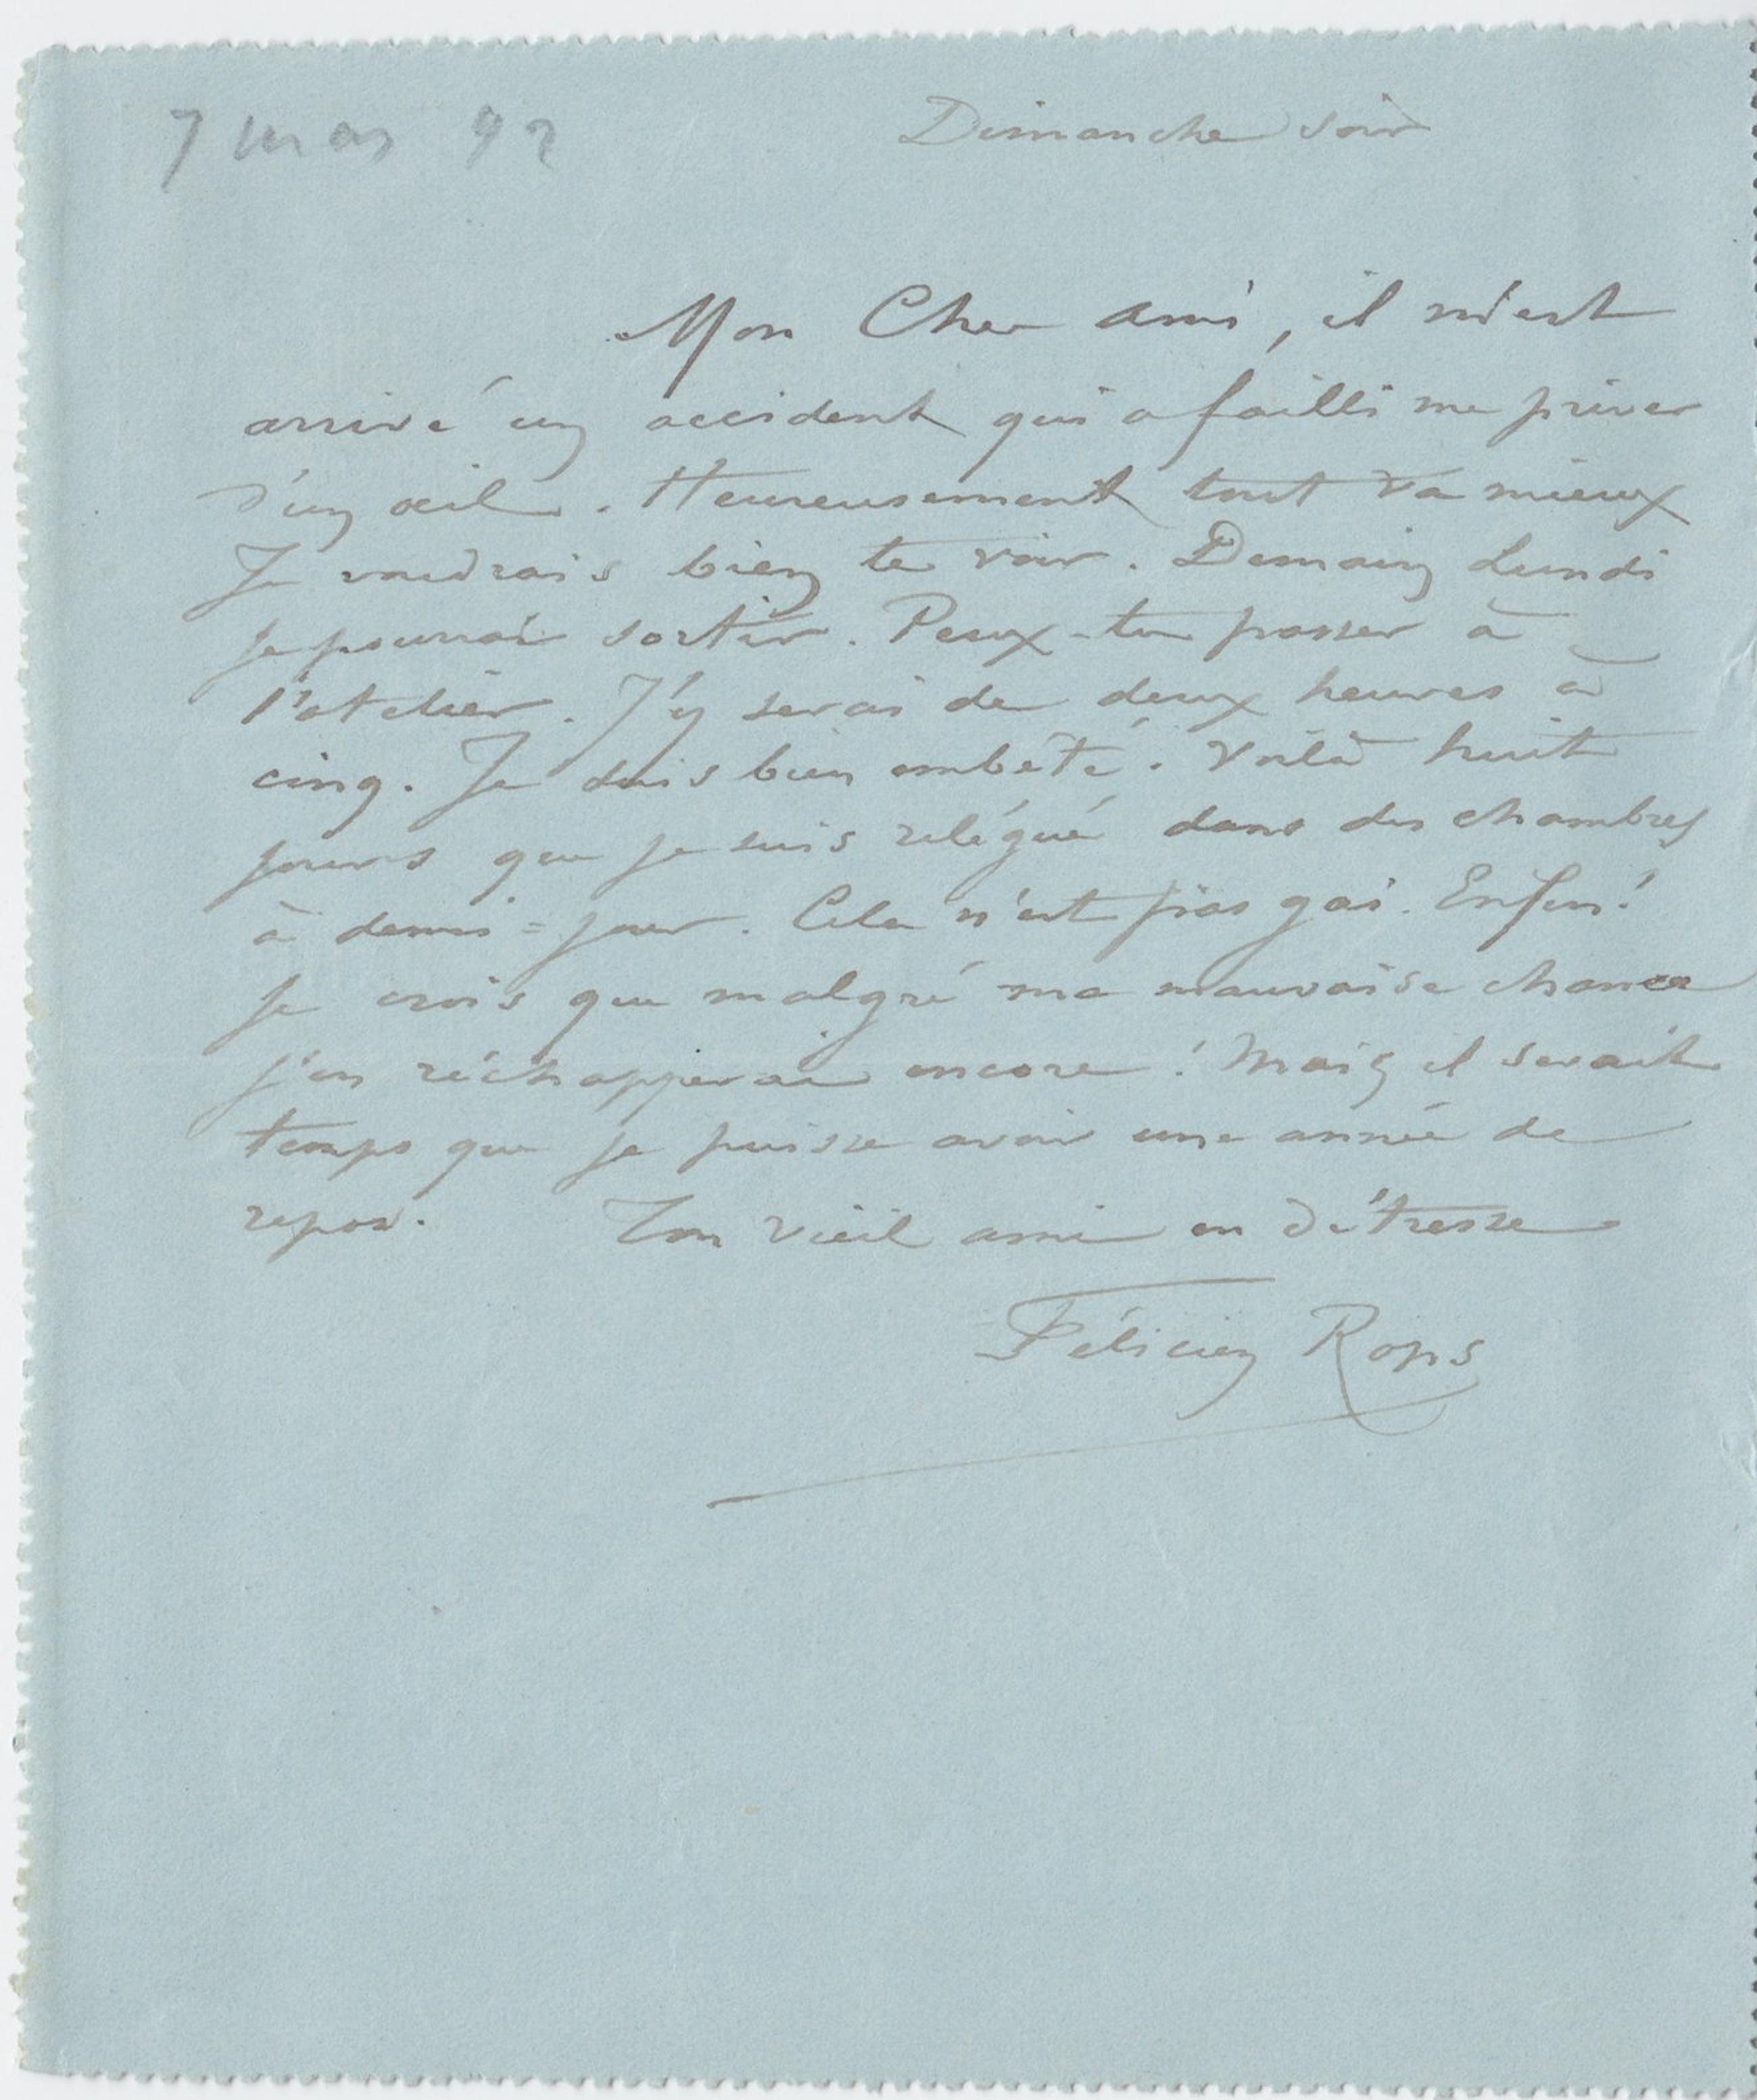 7 mars 92
Dimanche soir
Mon Cher ami, il m'est
arrivé un accident qui a failli me priver
d'un œil. Heureusement tout va mieux
Je voudrais bien te voir. Demain Lundi
je pourrai sortir. Peux-tu passer à
l'atelier. J'y serai de deux heures à
cinq. Je suis bien embêté. Voilà huit
jours que je suis relégué dans des chambres
à demi=jour. Cela n'est pas gai. Enfin!
je crois que malgré ma mauvaise chance
j'en réchapperai encore! Mais il serait
temps que je puisse avoir une année de
repos. Ton vieil ami en détresse
Félicien Rops